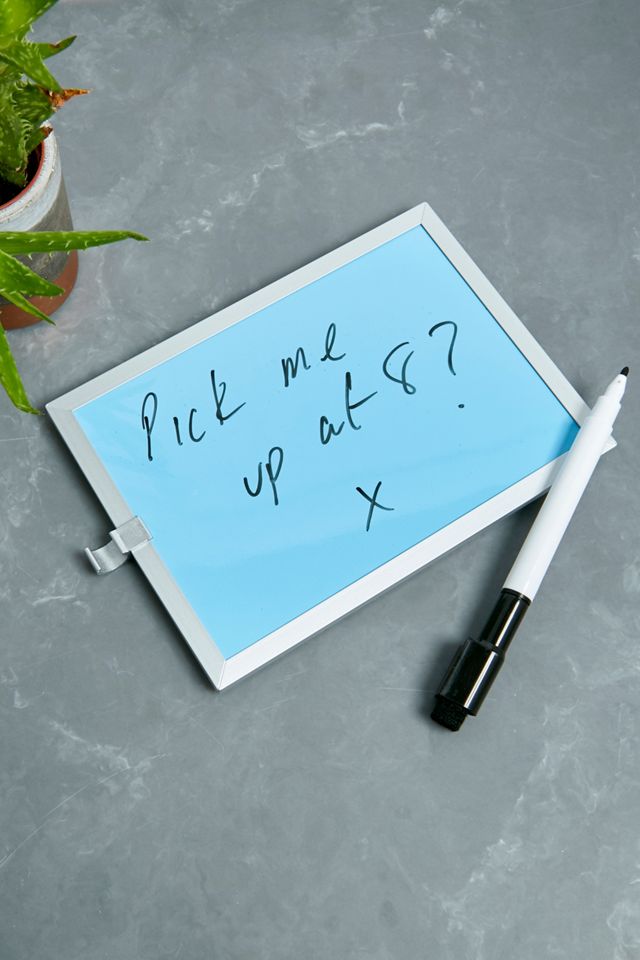 Pick me
up at 8?
x